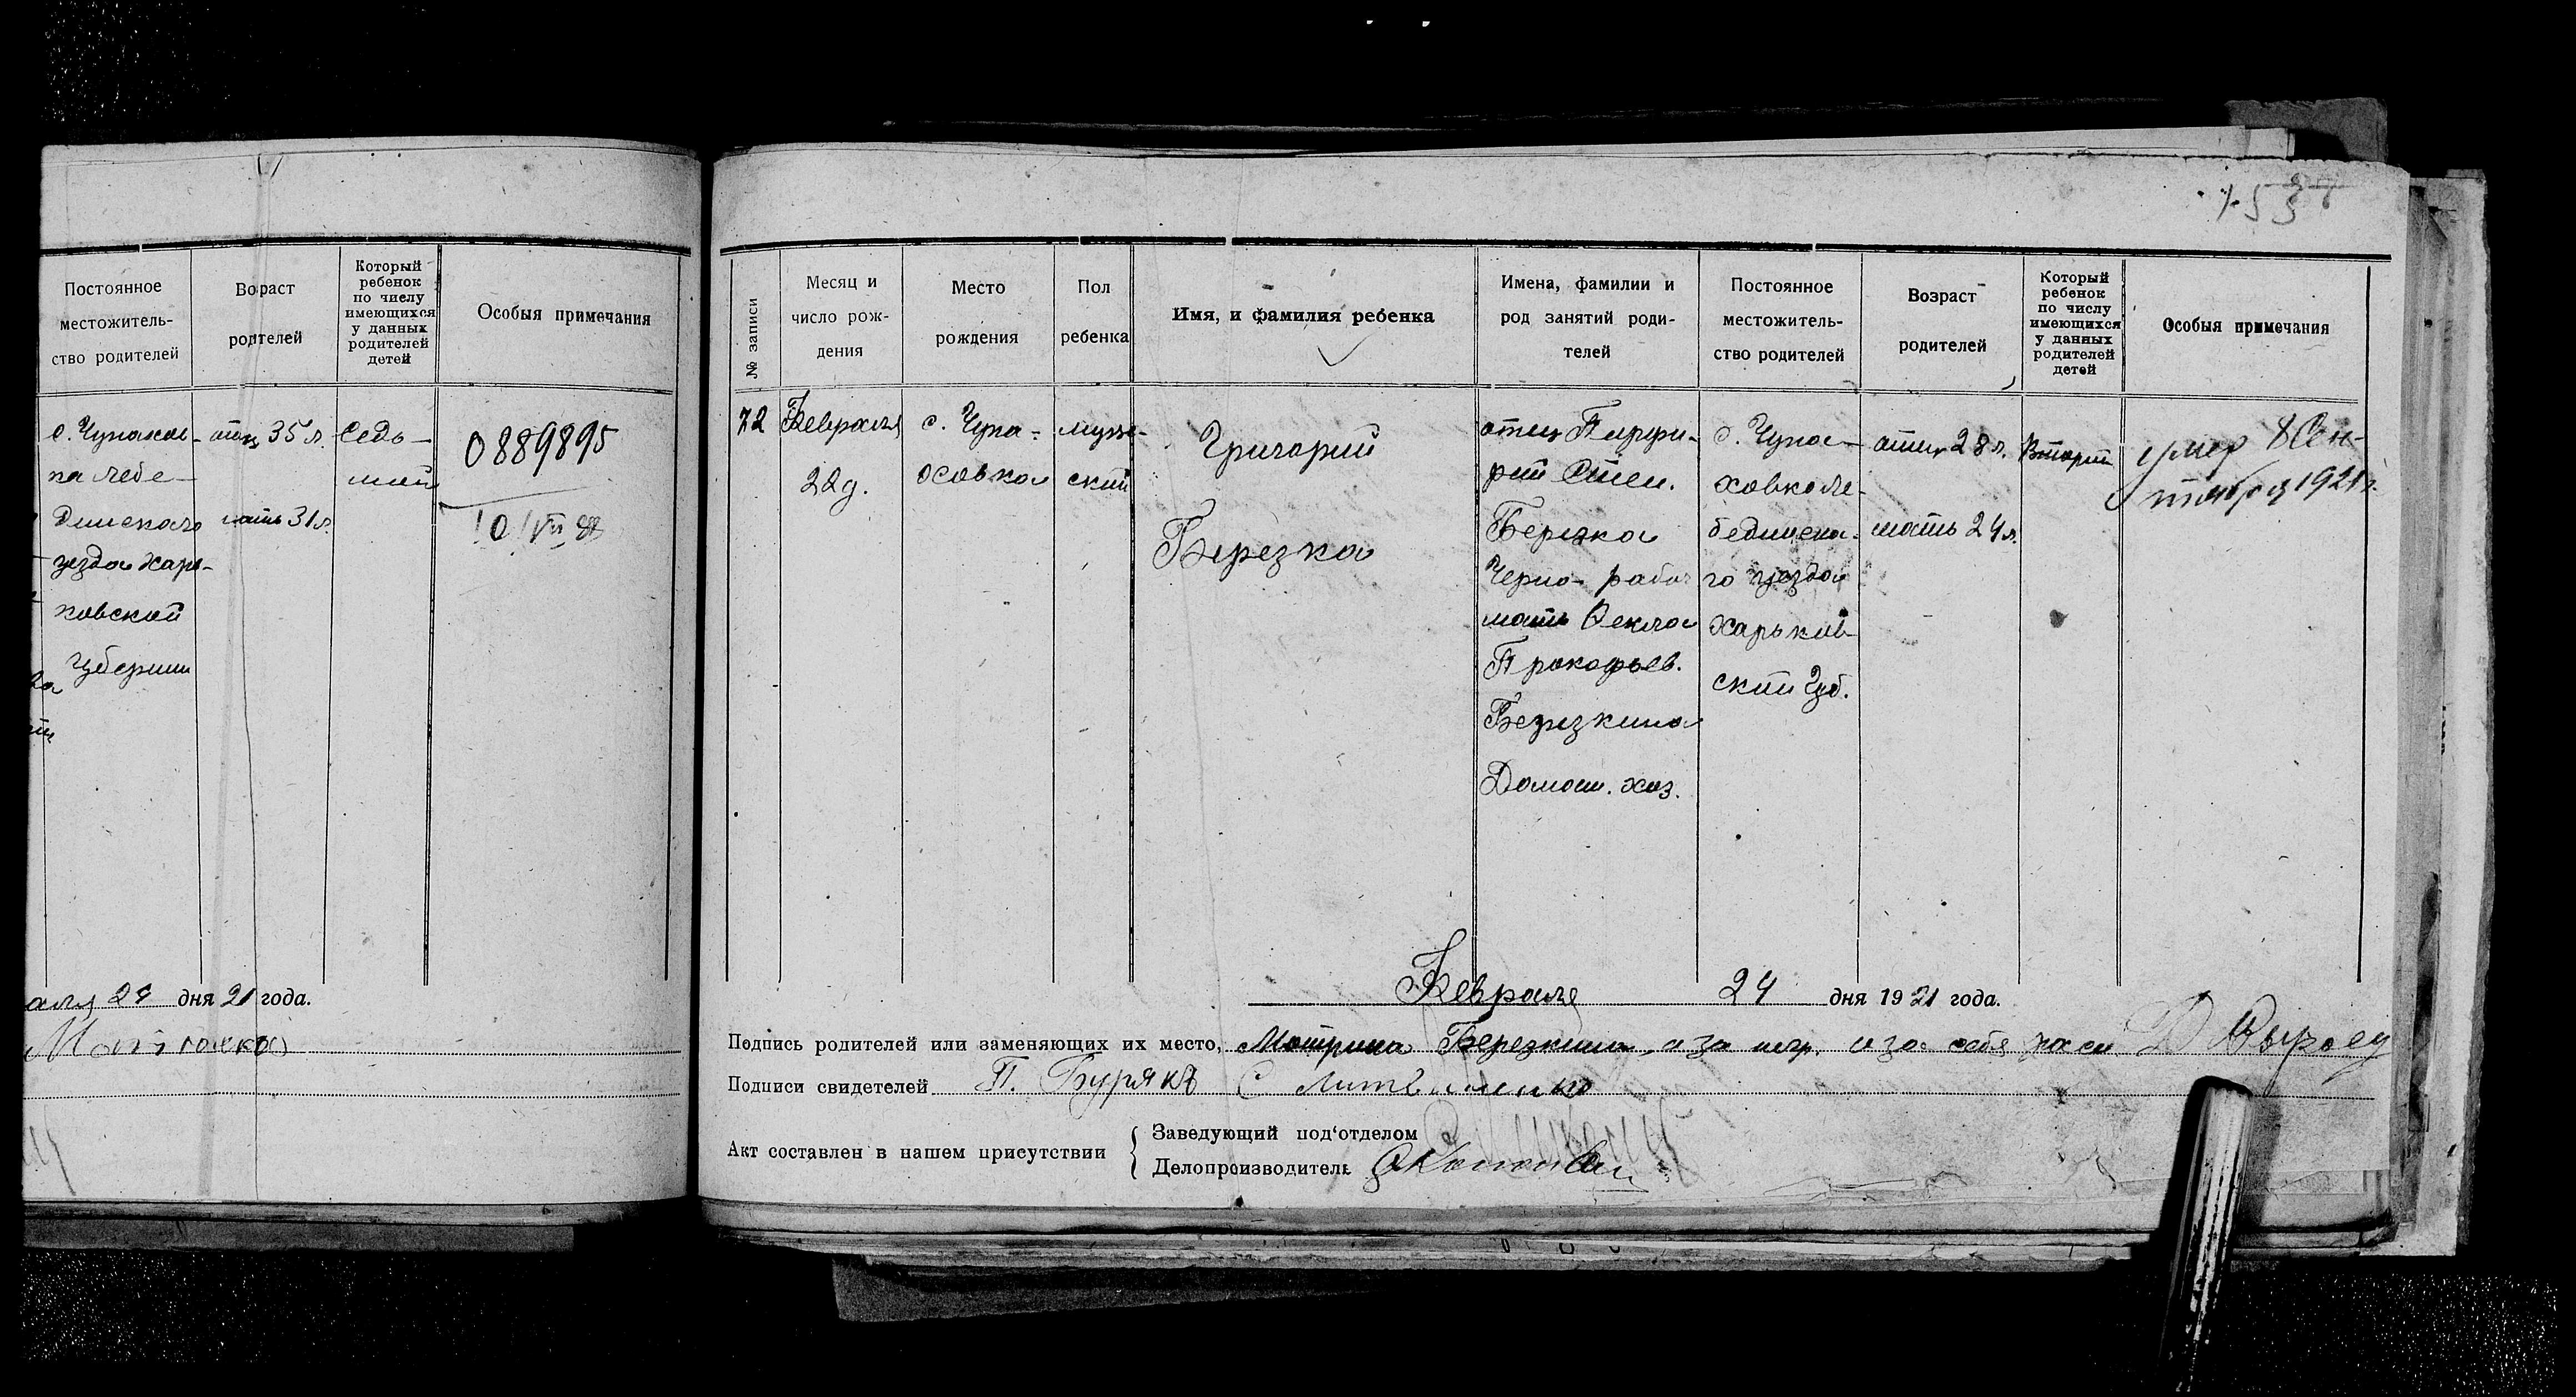 Постоянное
местожитель-
ство родителей
Возраст
родителей
Который
ребенок
по числу
имеющихся
у данных
родителей
детей
Особыя примечания
с. Чупахов-
ка Лебе-
динскаго
уезда Харь-
ковской
Губернии
отец 35 л.
мать 31 л.
Седь-
мой
0889895
аля 24 дня 21 года.
№ записи
Месяц и
число рож-
дения
Место
рождения
Пол
ребенка
Имя, и фамилия ребенка
Имена, фамилии и
род занятий роди-
телей
Постоянное
местожитель-
ство родителей
Возраст
родителей
Который
ребенок
по числу
имеющихся
у данных
родителей
детей
Особыя примечания
72
Февраля
22 д.
с. Чупа-
ховка
муж-
ский
Григорий
Березка
отец Парфи-
рий Степ.
Березка
Черно-рабоч
мать Фекла
Прокофьев.
Березкина
Домаш. хоз.
с. Чупа-
ховка Ле-
бединска-
го уезда
Харьков-
ский Губ.
отец 28 л.
мать 24 л.
Второй
умер 8 Сен-
тября 1921 г.
Февраля 24 дня 1921 года.
Подпись родителей или заменяющих их место, Мотрина Березкина, а за негр. и за себя
Подписи свидетелей П. Буряк С. Литвиненко
Акт составлен в нашем присутствии
Заведующий под'отделом
Делопроизводитель